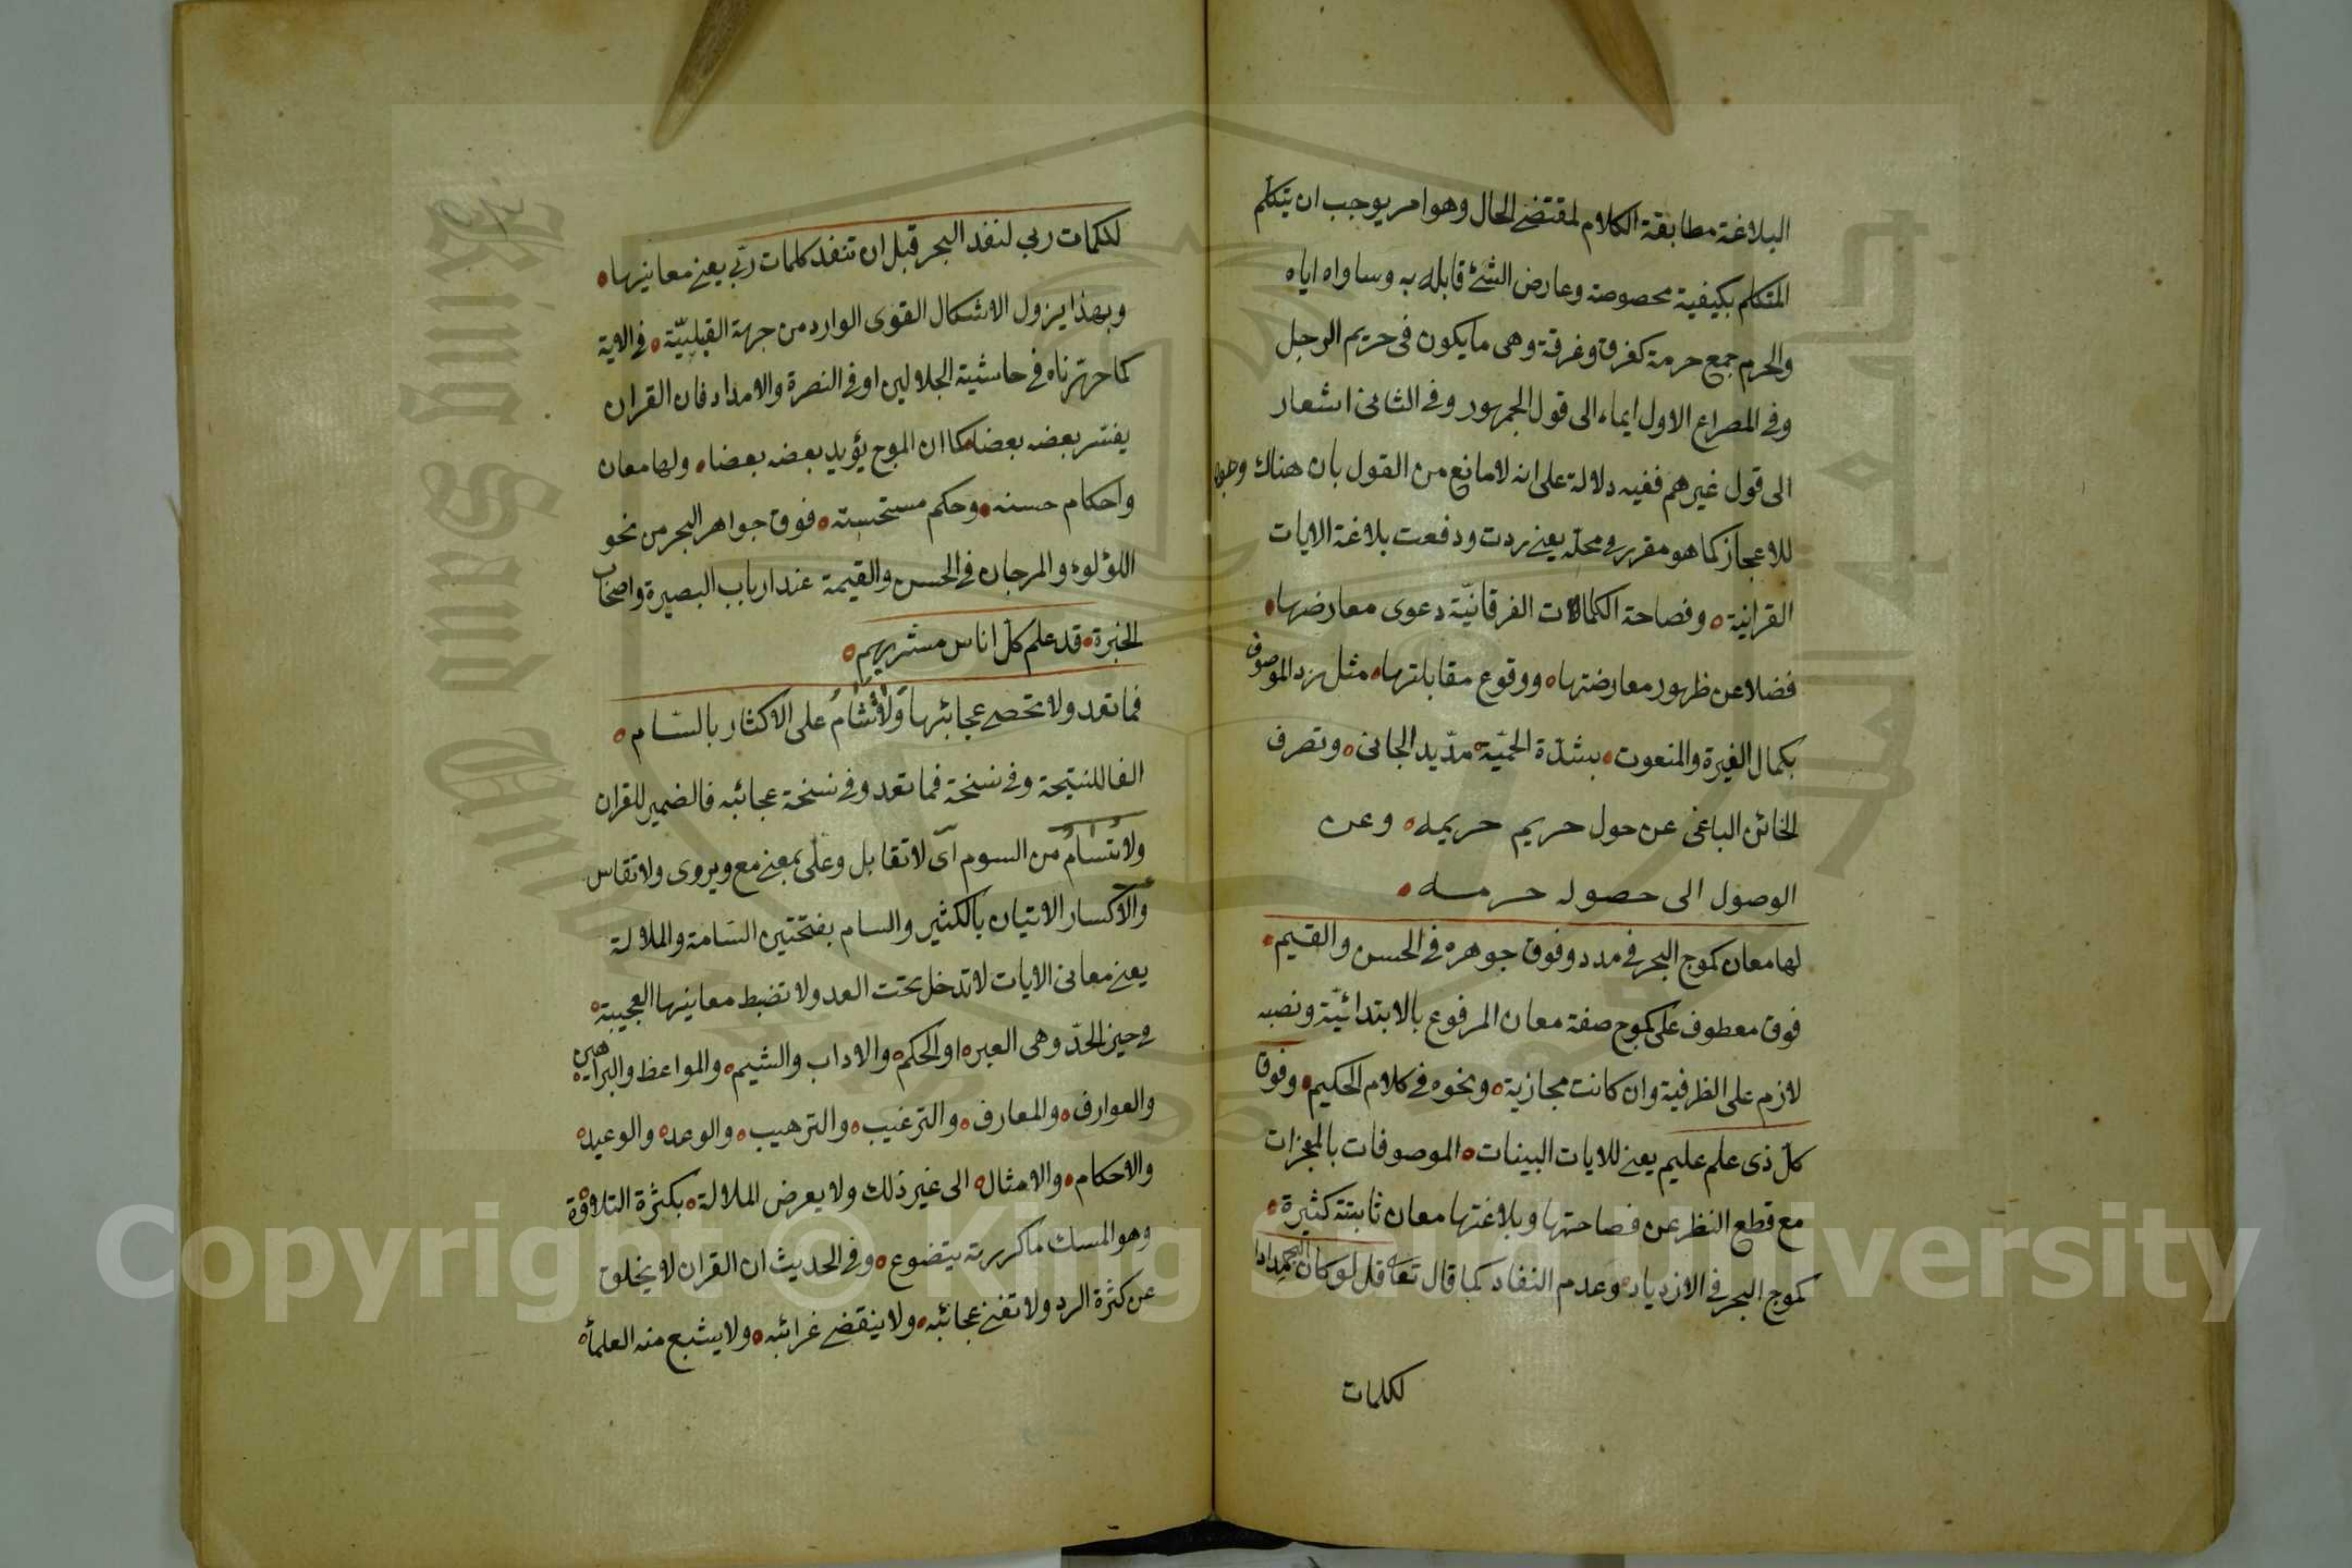 البلاغة مطابقة الكلام لمقتضى الحال وهو امر يوجب ان يتكلم
المتكلم بكيفية مخصوصة وعارض الشئ قابله به وساواه اياه
والحرم جمع حرمة كغرق وغرقة وهى ما يكون فى حريم الرجل
وفى المصراع الاول ايماء الى قول الجمهور وفى الثانى اشعار
الى قول غيرهم ففيه دلالة على انه لا مانع من القول بان هناك وجوها
للاعجاز كما هو مقرر فى محله يعنى ردت ودفعت بلاغة الايات
القرانية ه وفصاحة الكمالات الفرقانيّة دعوى معارضها ه
فضلا عن ظهور معارضتها ه ووقوع مقابلتها ه مثل رد الموصوف
بكمال الغيرة والمنعوت ه بشدّة الحميّة ه مدّ يد الجانى ه وتصرف
الخائن الباغى عن حول حريم حريمه ه وعن
الوصول الى حصول حرمه ه
لها معان كموج البحر فى مدد وفوق جوهره فى الحسن والقيم ه
فوق معطوف على كموج صفة معان المرفوع بالابتدائيّة ونصبه
لازم على الظرفية وان كانت مجازية ه ونحوه فى كلام الحكيم ه وفوق
كل ذى علم عليم يعنى للايات البينات ه الموصوفات بالمعجزات
مع قطع النظر عن فصاحتها وبلاغتها معان ثابتة كثيرة ه
كموج البحر فى الازدياد ه وعدم النفاد كما قال تعالى قل لو كان البحر مدادا
لكلمات
لكلمات ربي لنفد البحر قبل ان تنفد كلمات ربّي يعنى معانيها ه
وبهذا يزول الاشكال القوى الوارد من جهة القبليّة ه فى الاية
كما حررناه فى حاشية الجلالين او فى النصرة والامداد فان القران
يفسر بعضه بعضا ه كما ان الموج يؤيد بعضه بعضا ه ولها معان
واحكام حسنه ه وحكم مستحسنة ه فوق جواهر البحر من نحو
اللؤلوء والمرجان فى الحسن والقيمة عند ارباب البصيرة واصحاب
الخبرة ه قد علم كل اناس مشربهم ه
فما تعد ولا تحصى عجائبها وَلا تُسَٰامُ على الاكثار بالسّام ه
الفا للنتيحة وفى نسخة فما تعد وفى نسخة عجائبه فالضمير للقران
ولا تسام من السوم اى لا تقابل وعلى بمعنى مع ويروى ولا تقاس
والاكسار الاتيان بالكثير والسام بفتحتين السّامة والملالة
يعنى معانى الايات لا تدخل تحت العد ولا تضبط معانيها العجيبة ه
فى حيز الحدّ وهى العبره او الحكم ه والاداب والشيم ه والمواعظ والبراهين ه
والعوارف ه والمعارف ه والترغيب ه والترهيب ه والوعد ه والوعيد ه
والاحكام ه والامثال ه الى غير ذلك ولا يعرض الملالة ه بكثرة التلاوة
وهو المسك ما كررته يتضوع ه وفى الحديث ان القران لا يخلق
عن كثرة الرد ولا تفنى عجائبه ه ولا ينقضى غرائبه ه ولا يشبع منه العلمأ ه
Copyright © King Saud University